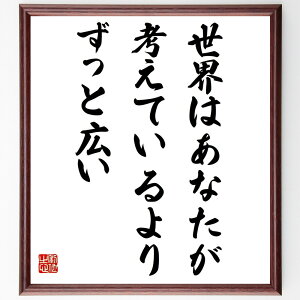 世界はあなたが
考えているより
ずっと広い